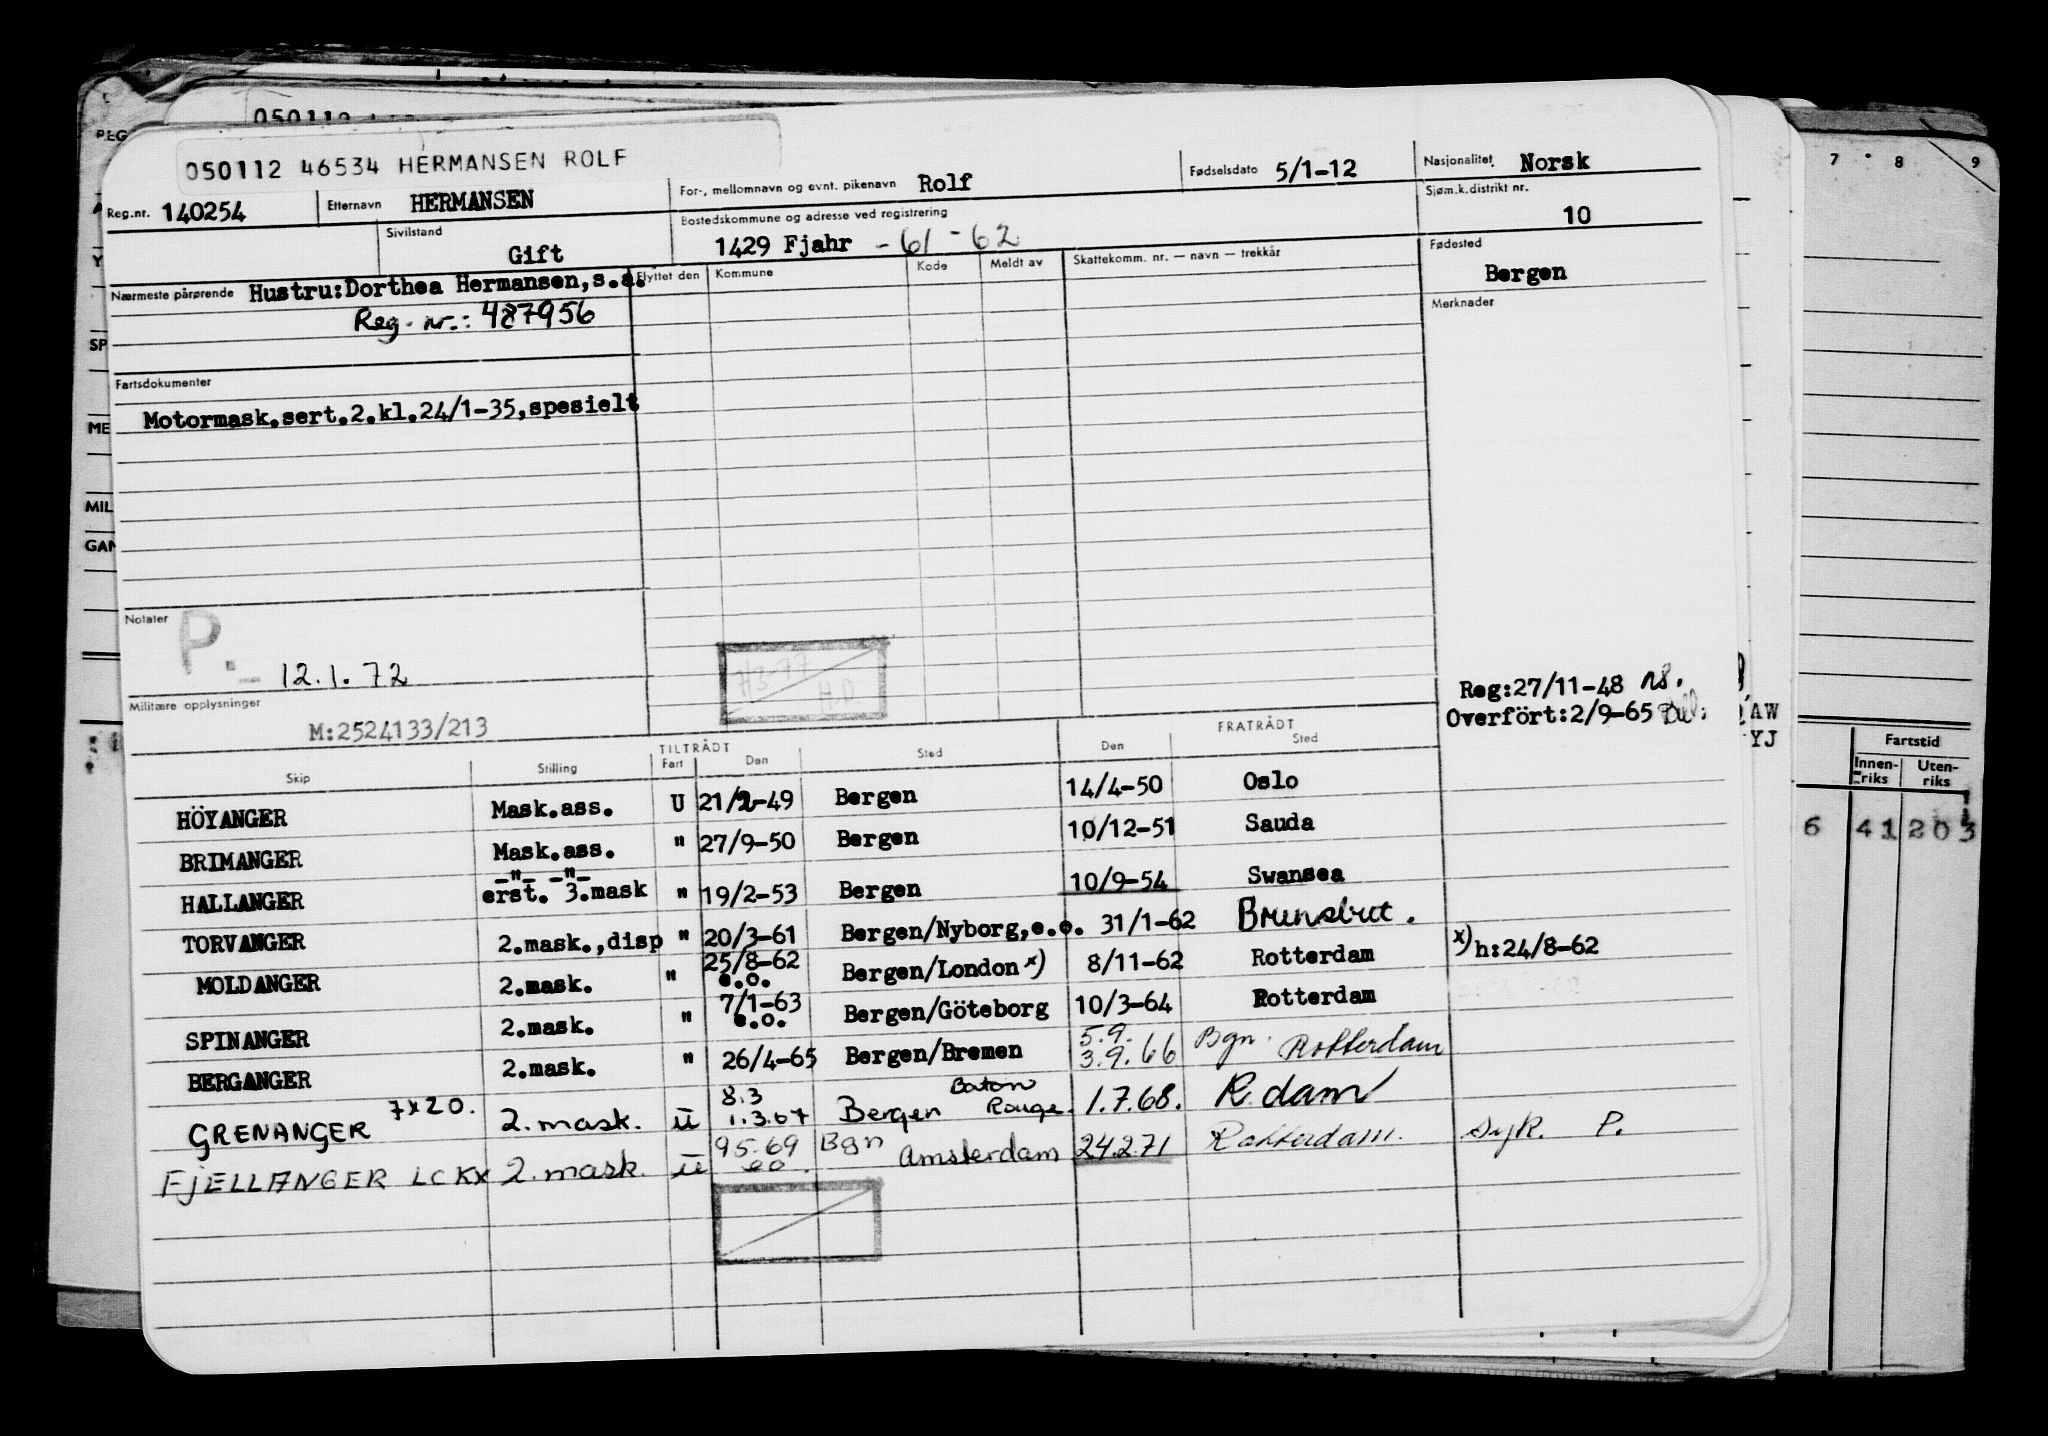 050112
050112 46534 HERMANSEN ROLF
Reg.nr. 140254 Etternavn HERMANSEN For-, mellomnavn og evnt. pikenavn Rolf Fødselsdato 5/1-12 Nasjonalitet Norsk
Sivilstand Gift Bostedskommune og adresse ved registrering 1429 Fjahr - 61 - 62 Sjøm.k.distrikt nr. 10
Nærmeste pårørende Hustru:Dorthea Hermansen,s.a. Flyttet den Kommune Kode Meldt av Skattekomm. nr. — navn — trekkår Fødested Bergen
Reg. nr.: 487956 Merknader
Fartsdokumenter
Motormask.sert.2.kl.24/1-35,spesielt
Notater P. - 12.1.72
7/3-77
H.D.
Reg:27/11-48
Overfört:2/9-65
Militære opplysninger M:2524133/213
TILTRÅDT FRATRÅDT
Skip Stilling Fart Den Sted Den Sted
HÖYANGER Mask.ass. U 21/2-49 Bergen 14/4-50 Oslo
BRIMANGER Mask.ass. " 27/9-50 Bergen 10/12-51 Sauda
HALLANGER -"- -"- erst. 3.mask " 19/2-53 Bergen 10/9-54 Swansea
TORVANGER 2.mask.,disp " 20/3-61 Bergen/Nyborg,e.o. 31/1-62 Brunsbut.
MOLDANGER 2.mask. " 25/8-62 e.o. Bergen/London x) 8/11-62 Rotterdam x) h:24/8-62
SPINANGER 2.mask. " 7/1-63 e.o. Bergen/Göteborg 10/3-64 Rotterdam
BERGANGER 2.mask. " 26/4-65 Bergen/Bremen 5.9. 3.9.66 Bgn. Rotterdam
GRENANGER 7x20. 2.mask. U 8.3 1.3.67 Bergen Baton Rouge. 1.7.68. R.dam
FJELLANGER LCKX 2.mask. U 9.5.69 eo. Bgn Amsterdam 24.2.71 Rotterdam. syk. P.
REG
Y
SP
ME
MIL
GAN
7 8 9
AW
YJ
Fartstid
Innen-riks Uten-riks
6 41 203